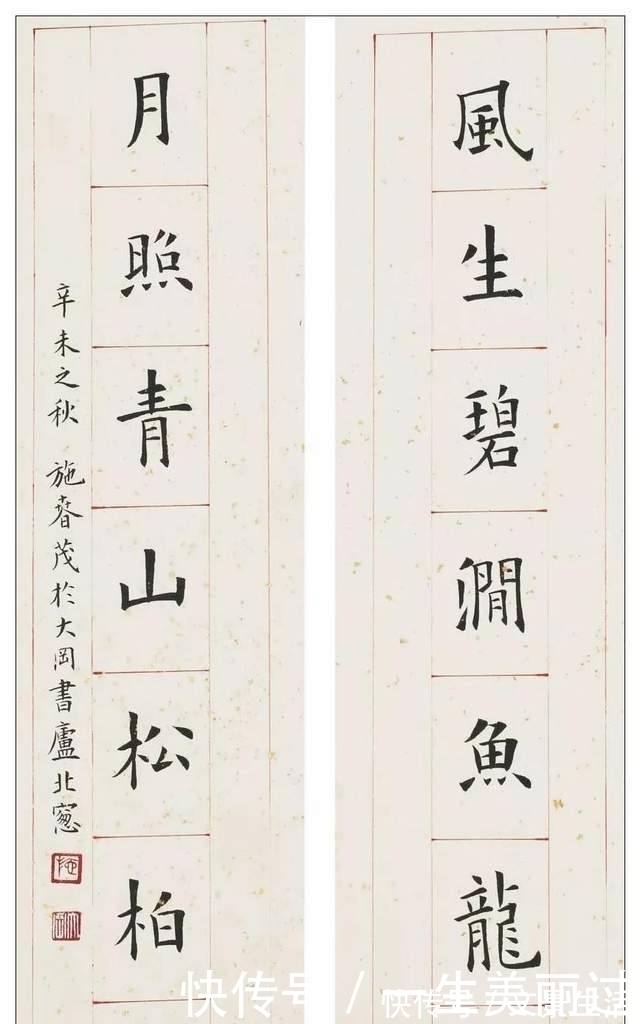 風生碧澗魚龍
月照青山松柏
辛未之秋 施春茂於大岡書廬北窓
快传号 / 一生美丽过
快传号